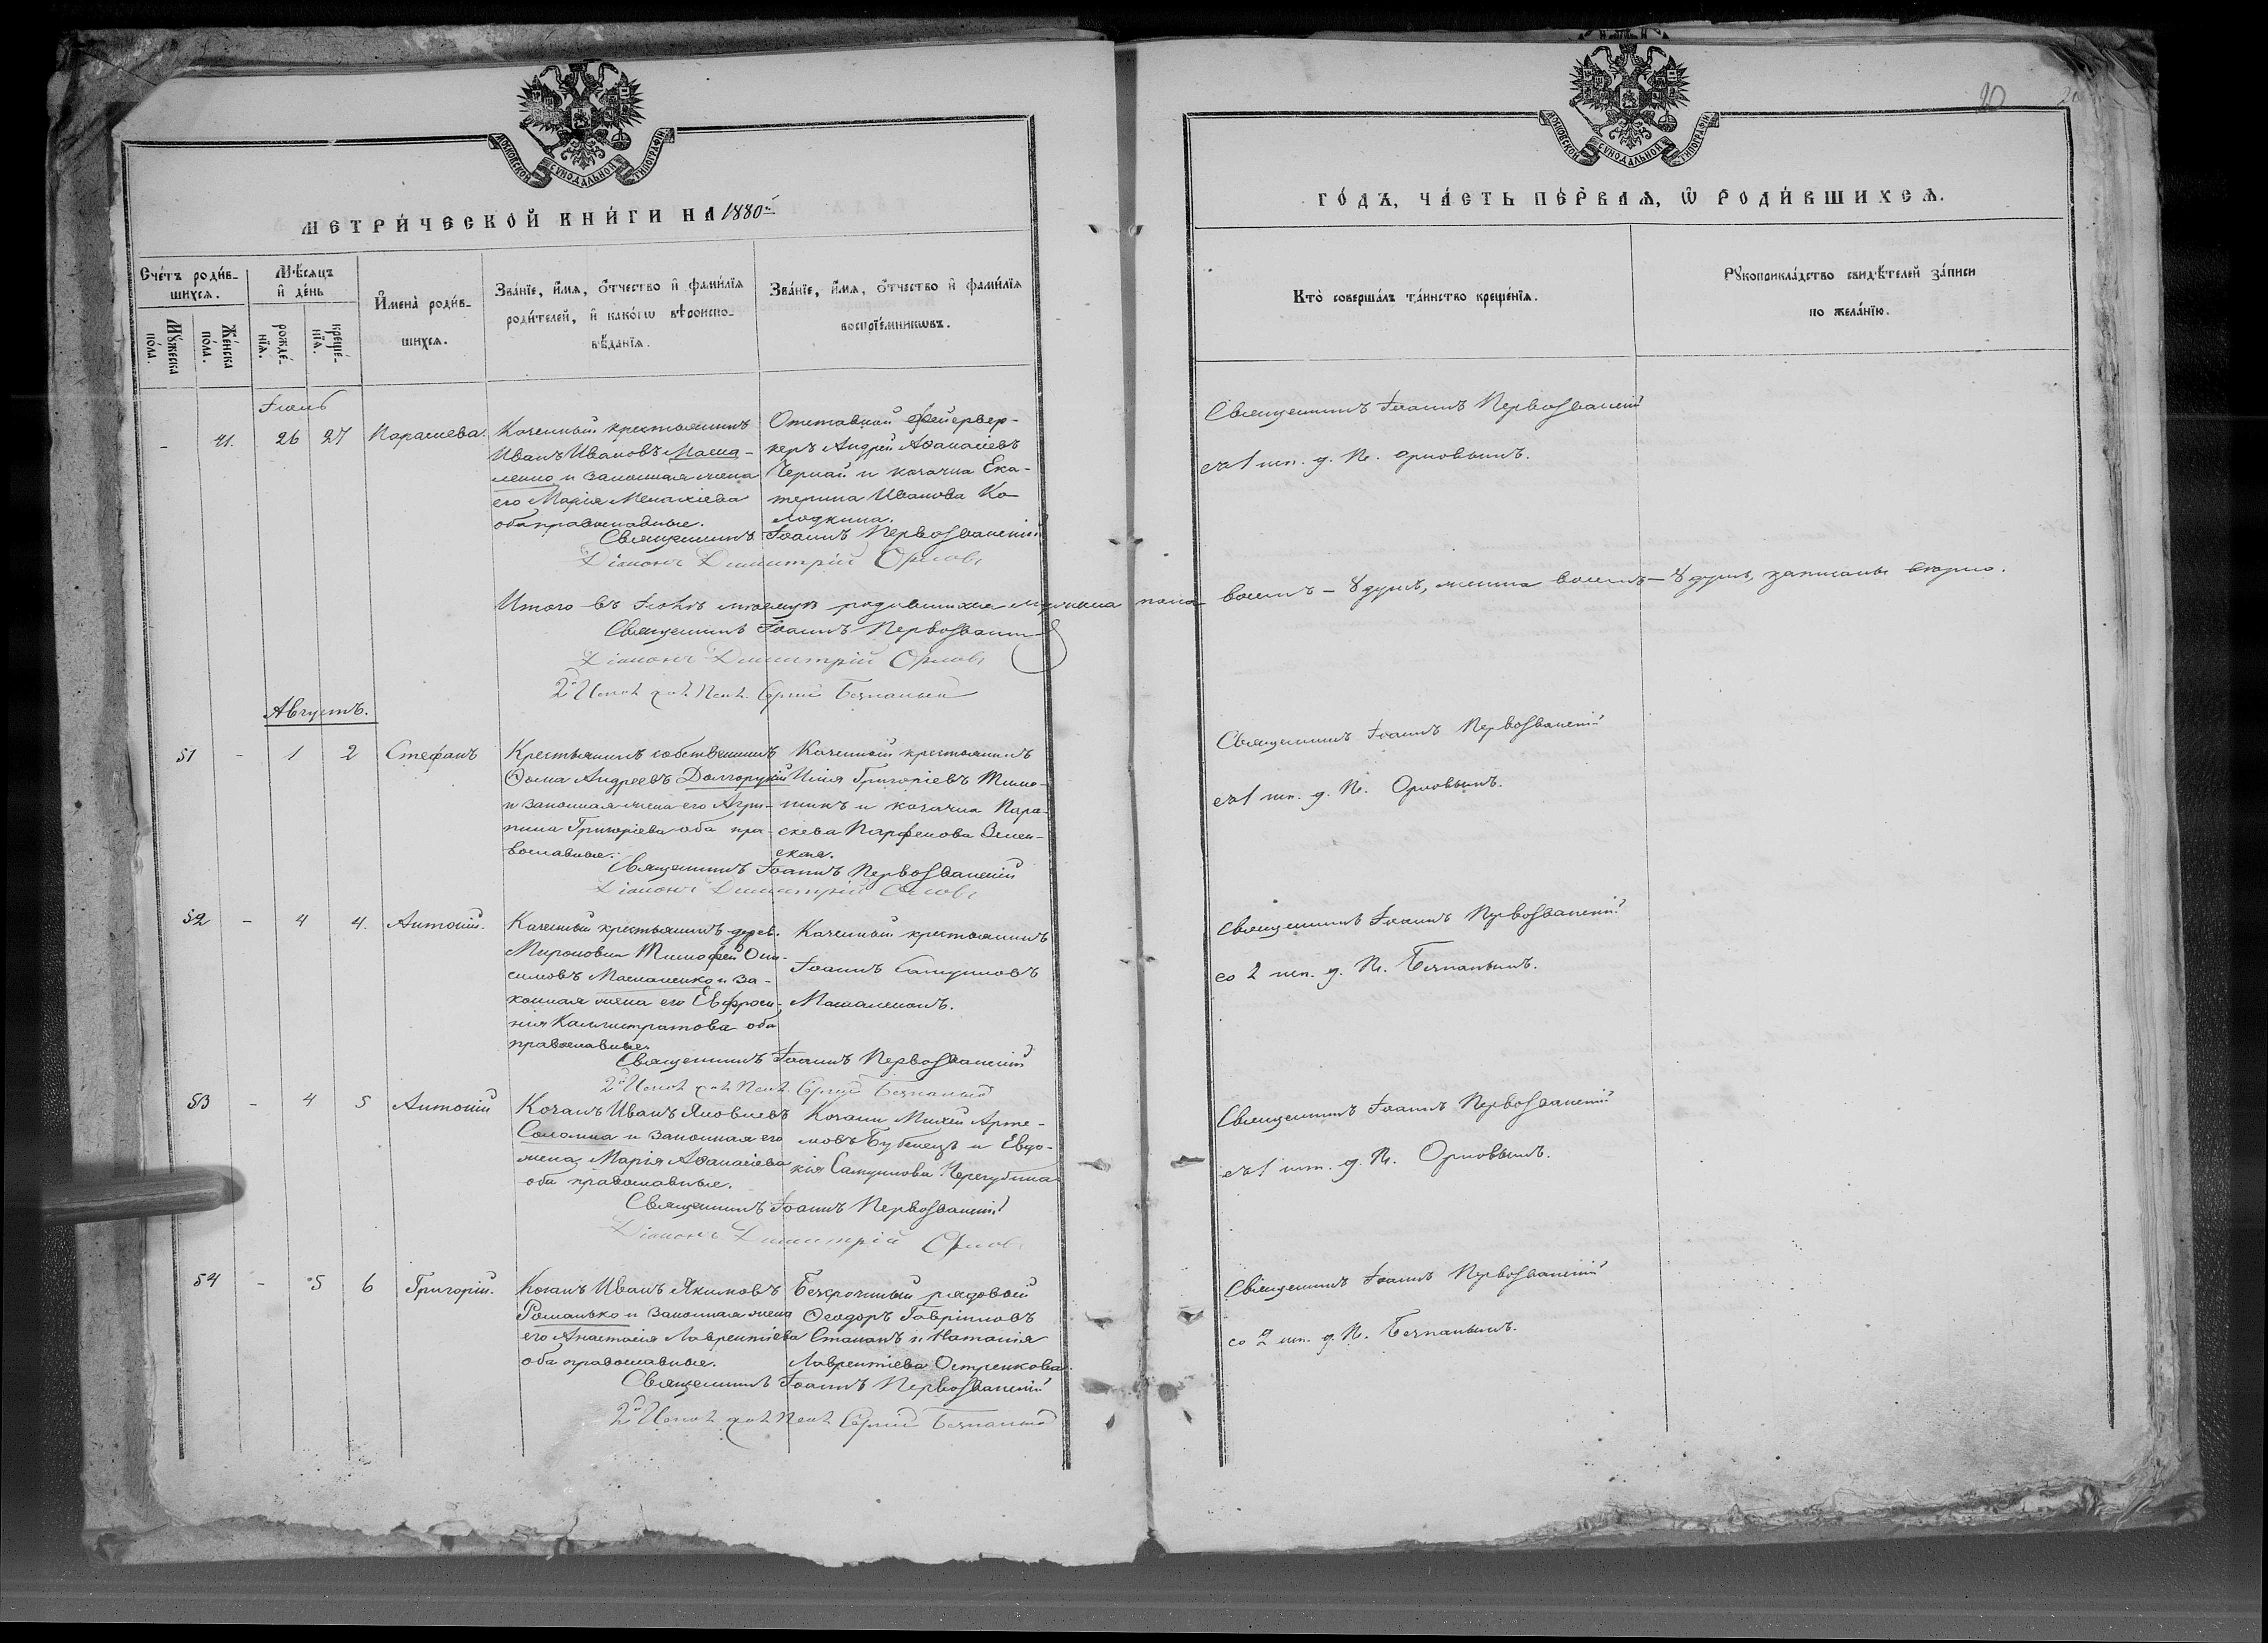 МОСКОВСКОЙ СѴНОДАЛЬНОЙ ТИПОГРАФІИ
МЕТРИ́ЧЕСКОЙ КНИ́ГИ НА 1880й
Сче́тъ роди́в-
шихсѧ.
Мѣ́сѧцъ
и҆ де́нь
Мꙋ́жеска
по́ла.
Же́нска
по́ла.
рожде́-
нїѧ.
креще́-
нїѧ.
И҆мена̀ роди́в-
шихсѧ.
Зва́нїе, и҆́мѧ, ѻ҆́тчество и҆ фами́лїѧ
роди́телей, и҆ како́гѡ вѣроиспо-
вѣ́данїѧ.
Зва́нїе, и҆́мѧ, ѻ҆́тчество и҆ фами́лїѧ
воспрїе́мникѡвъ.
Іюль
- 41. 26 27 Параскева.
Казенный крестьянинъ
Иванъ Ивановъ Маша-
ленко и законная жена
его Марія
оба православные.
Отставной фейервер-
керъ Андрей Аѳанасіевъ
Черный и козачка Ека-
терина Иванова Ко-
лодкина.
Священникъ Іоаннъ Первозванскій
Діаконъ Димитрій Орловъ
Итого въ Іюлѣ мѣсяцѣ родившихся мужеска пола восемь - 8 душъ, женска восемь - 8 душъ, записаны вѣрно.
Священникъ Іоаннъ Первозванскій
Діаконъ Димитрій Орловъ
2й Сергій Безпалый
Августъ.
51 - 1 2 Стефанъ
Крестьянинъ собственникъ
Ѳома Андреевъ Долгорукій
и законная жена его Агри-
пина Григоріева оба пра-
вославные.
Казенный крестьянинъ
Илія Григоріевъ Тимо-
и козачка Пара-
скева Парфенова Зелен-
ская.
Священникъ Іоаннъ Первозванскій
Діаконъ Димитрій Орловъ
52 - 4 4. Антоній.
Казенный крестьянинъ дерев.
Мироновки Тимофей Они-
симовъ Машаленко и за-
конная жена его Евфроси-
нія Каллистратова оба
православные.
Казенный крестьянинъ
Іоаннъ Самуиловъ
Машаленко.
Священникъ Іоаннъ Первозванскій
2й Сергій Безпалый
53 - 4 5 Антоній
Козакъ Иванъ Яковлевъ
Соломка и законная его
жена Марія Аѳанасіева
оба православные.
Козаки Михей Арте-
мовъ Бубенецъ и Евдо-
кія Самуилова
Священникъ Іоаннъ Первозванскій
Діаконъ Димитрій Орловъ
54 - 5 6 Григорій.
Козакъ Иванъ Якимовъ
Романько и законная жена
его Анастасія Лаврентіева
оба православные.
Безсрочный рядовой
Ѳеодоръ Гавріиловъ
и Наталія
Лаврентіева Остренкова.
Священникъ Іоаннъ Первозванскій
2й Сергій Безпалый
20
МОСКОВСКОЙ СѴНОДАЛЬНОЙ ТИПОГРАФІИ
ГО́ДЪ, ЧА́СТЬ ПЕ́РВАѦ, Ѡ҆ РОДИ́ВШИХСѦ.
Кто̀ соверша́лъ та́инство креще́нїѧ.
Рꙋкоприкла́дство свидѣ́телей за́писи
по жела́нїю.
Священникъ Іоаннъ Первозванскій
съ 1 шт. д. Пс. Орловымъ.
Священникъ Іоаннъ Первозванскій
съ 1 шт. д. Пс. Орловымъ.
Священникъ Іоаннъ Первозванскій
со 2 шт. д. Пс. Безпалымъ.
Священникъ Іоаннъ Первозванскій
съ 1 шт. д. Пс. Орловымъ.
Священникъ Іоаннъ Первозванскій
со 2 шт. д. Пс. Безпалымъ.